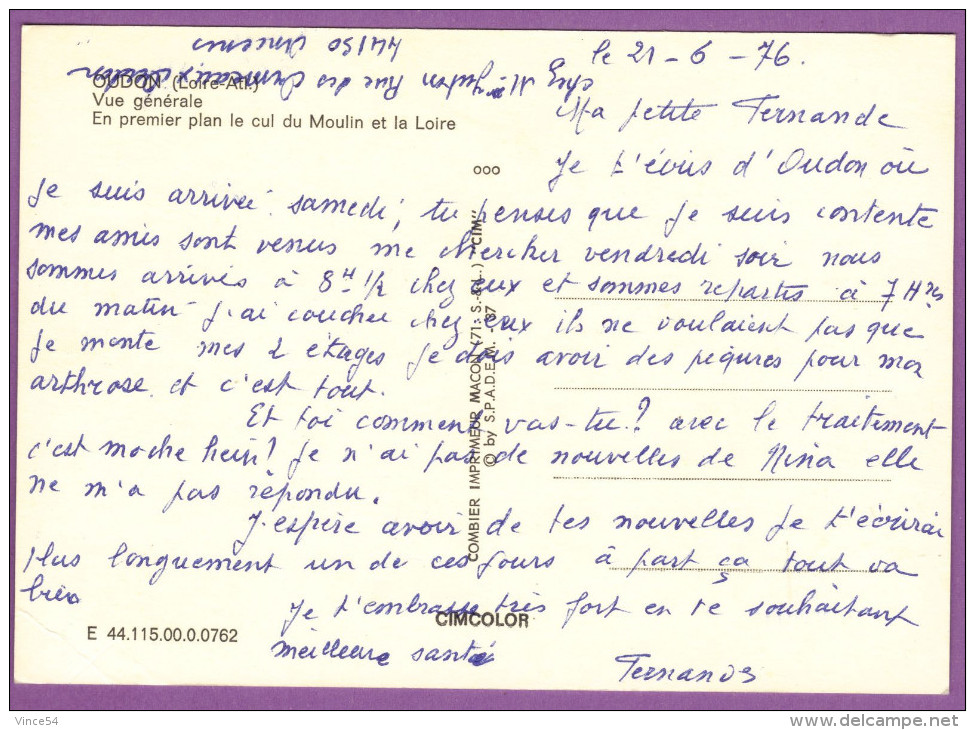 44150 Ancenis
le 21 - 6 - 76.
OUDON (Loire-Atl.)
Vue générale
En premier plan le cul du Moulin et la Loire
Ma petite Fernande
ooo
Je t'écris d'Oudon où
Je suis arrivée samedi, tu penses que je suis contente
mes amis sont venus me chercher vendredi soir nous
sommes arrivés à 8H 1/2 chez eux et sommes repartis à 7 Hres
du matin J'ai couchée chez eux ils ne voulaient pas que
Je monte mes 2 étages Je dois avoir des piqures pour mon
arthrose et c'est tout.
Et toi comment vas-tu? avec le traitement
c'est moche hein! Je n'ai pas de nouvelles de Nina elle
ne m'a pas répondu.
J'espère avoir de tes nouvelles Je t'écrirai
plus longuement un de ces jours à part ça tout va
bien
Je t'embrasse très fort en te souhaitant
meilleure santé
COMBIER IMPRIMEUR MACON (71. S.-&-L.) "CIM"
© by S.P.A.D.E.M. - 67
CIMCOLOR
E 44.115.00.0.0762
Vince54
delcampe.net